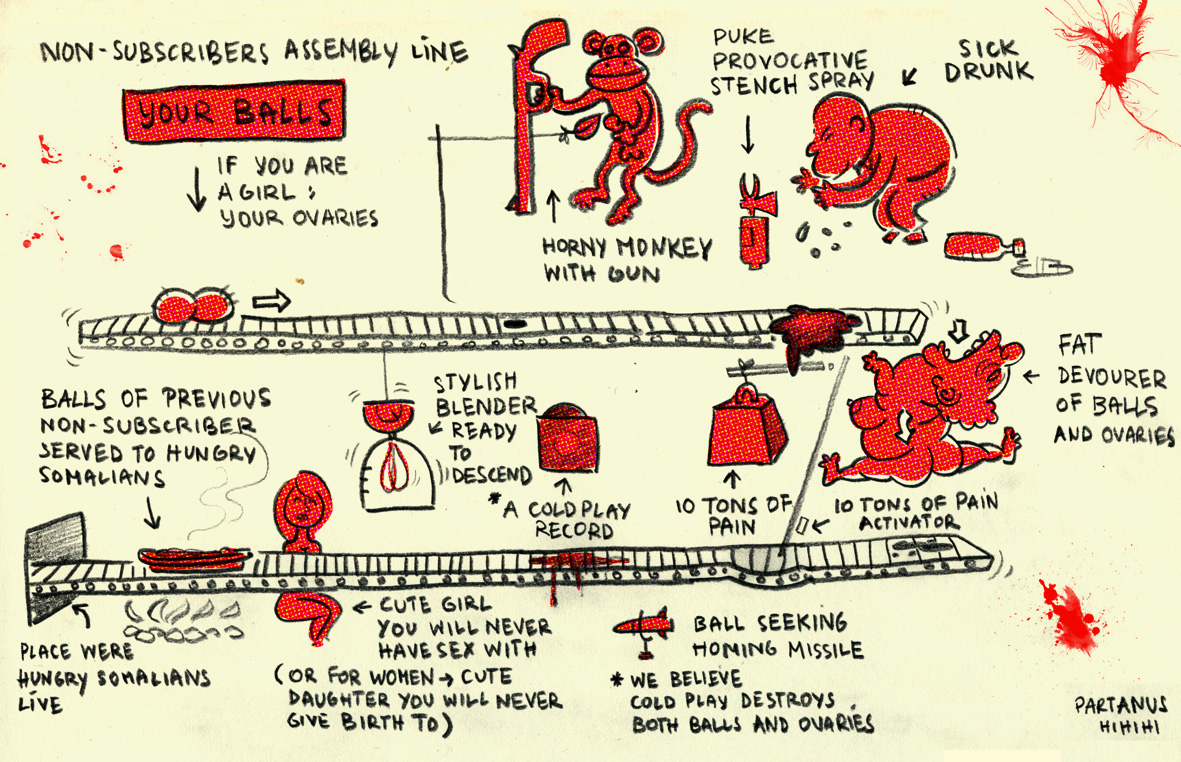 NON-SUBSCRIBERS ASSEMBLY LINE
YOUR BALLS
IF YOU ARE
A GIRL :
YOUR OVARIES
HORNY MONKEY
WITH GUN
PUKE
PROVOCATIVE
STENCH SPRAY
SICK
DRUNK
FAT
DEVOURER
OF BALLS
AND OVARIES
STYLISH
BLENDER
READY
TO
DESCEND
* A COLDPLAY
RECORD
10 TONS OF
PAIN
10 TONS OF PAIN
ACTIVATOR
BALLS OF PREVIOUS
NON-SUBSCRIBER
SERVED TO HUNGRY
SOMALIANS
PLACE WERE
HUNGRY SOMALIANS
LIVE
CUTE GIRL
YOU WILL NEVER
HAVE SEX WITH
(OR FOR WOMEN → CUTE
DAUGHTER YOU WILL NEVER
GIVE BIRTH TO)
BALL SEEKING
HOMING MISSILE
* WE BELIEVE
COLD PLAY DESTROYS
BOTH BALLS AND OVARIES
PARTANUS
HIHIHI